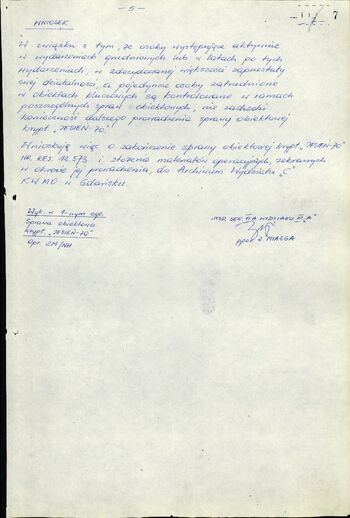 - 5 -
7
WNIOSEK
W związku z tym, że osoby występujące aktywnie
w wydarzeniach grudniowych lub w latach po tych
wydarzeniach, w zdecydowanej większości zaprzestały
wej działalności, a pojedyncze osoby zatrudnione
w obiektach kluczowych są kontrolowane w ramach
poszczególnych spraw obiektowych, nie zachodzi
konieczność dalszego prowadzenia sprawy obiektowej
krypt. „JESIEŃ-70".
Wnioskuję więc o zakończenie sprawy obiektowej krypt. „JESIEŃ-70"
NR REJ. 12573 i złożenie materiałów operacyjnych, zebranych
w okresie jej prowadzenia, do Archiwum Wydziału „C"
KWMO w Gdańsku
Wyk. w 1-nym egz.
Sprawa obiektowa
krypt. „JESIEŃ-70"
Opr. ZM/NH
INSP. SEK. II A WYDZIAŁU III „A"
ppor. Z. MIAZGA